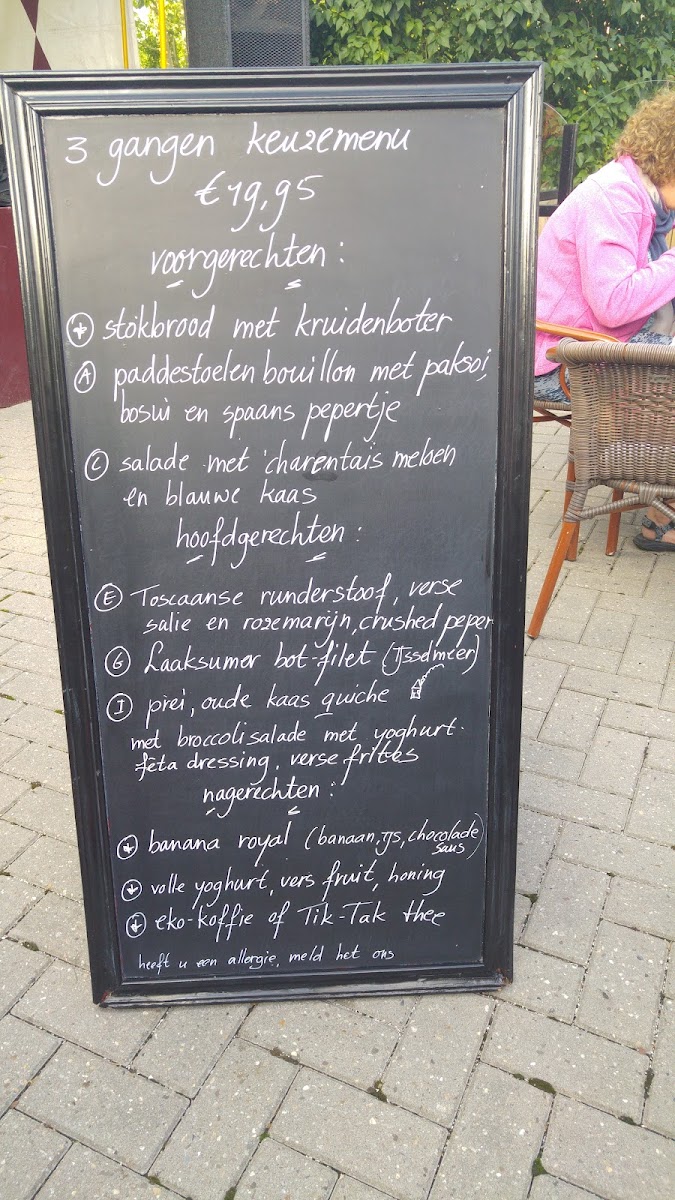 3 gangen keuzemenu
€19,95
voorgerechten:
stokbrood met kruidenboter
A paddestoelen bouillon met paksoi,
bosui en spaans pepertje
C salade met charentais meloen
en blauwe kaas
hoofdgerechten:
E Toscaanse runderstoof, verse
salie en rozemarijn, crushed peper
G Laaksumer bot-filet (IJsselmeer)
I prei, oude kaas quiche
met broccolisalade met yoghurt-
feta dressing, verse frites
nagerechten:
banana royal (banaan, ijs, chocolade
saus)
volle yoghurt, vers fruit, honing
eko-koffie of Tik-Tak thee
heeft u een allergie, meld het ons